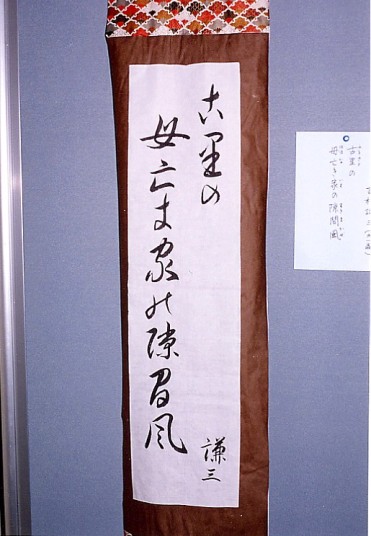 古里の
母亡き家の隙間風
謙三
古里の
母亡き家の隙間風